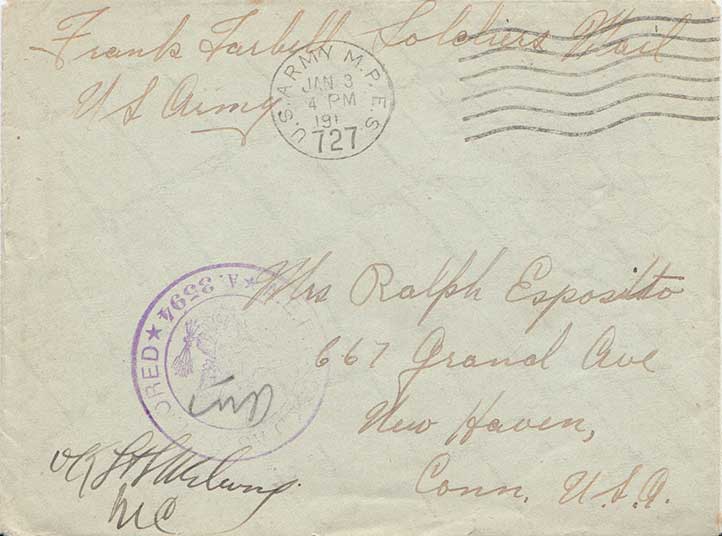 Frank Tarbell Soldiers Mail
US Army
U.S. ARMY M.P.E.S.
JAN 3
4 PM
191
727
A. 3594
ORED
Mrs Ralph Esposito
667 Grand Ave
New Haven,
Conn. U.S.A.
OK
MC